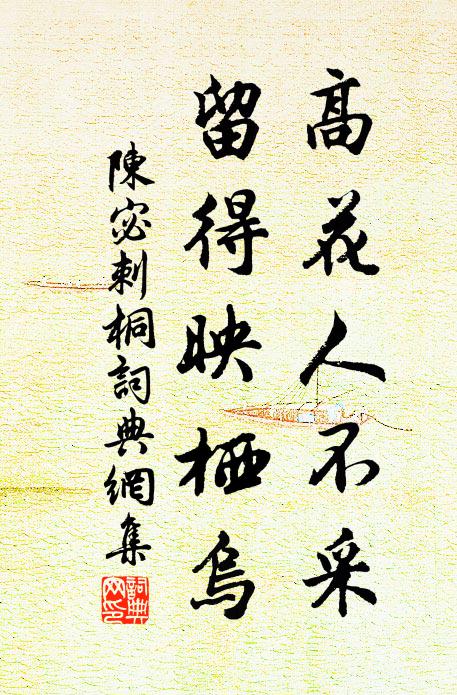 高花人不采
留得映栖烏
陳宓刺桐詞典網集
詞典网印